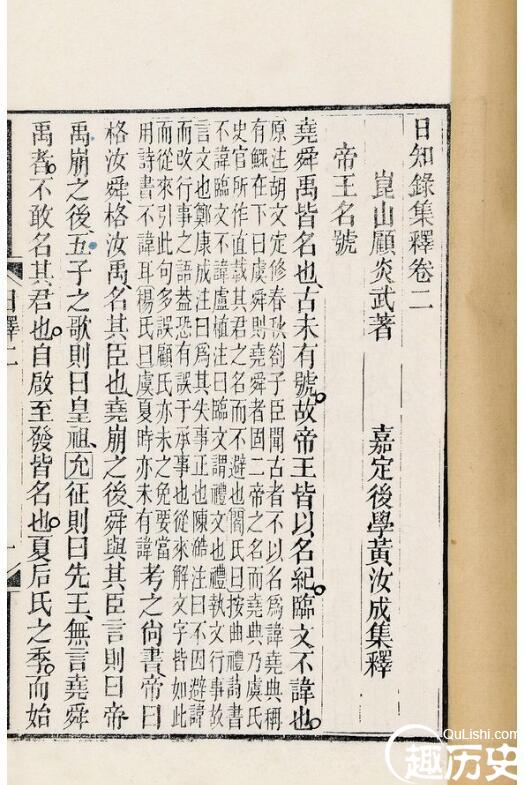 日知錄集釋卷二
崑山顧炎武著 嘉定後學黃汝成集釋
帝王名號
堯舜禹皆名也、古未有號。故帝王皆以名紀、臨文不諱也。
原注胡文定修春秋劄子臣聞古者不以名爲諱堯典稱
有鰥在下曰虞舜則堯舜者固二帝之名而堯典乃虞氏
史官所作直載其君之名而不避也閻氏曰按曲禮詩書
不諱臨文不諱盧植注曰臨文謂禮文也禮執文行事故
言文也鄭康成注曰爲其失事正也陳澔注曰不因避諱
而改行事之語葢恐有誤于承事也從來解文字皆如此
而從來引此句多誤顧氏亦未之免要當
用詩書不諱耳楊氏曰虞夏時亦未有諱
考之尙書、帝曰
格汝舜、格汝禹、名其臣也、堯崩之後、舜與其臣言則曰帝
禹崩之後、五子之歌則曰皇祖、允征則曰先王、無言堯舜
禹者。不敢名其君也。自啟至發皆名也。夏后氏之季。而始
QuLishi.com
趣历史